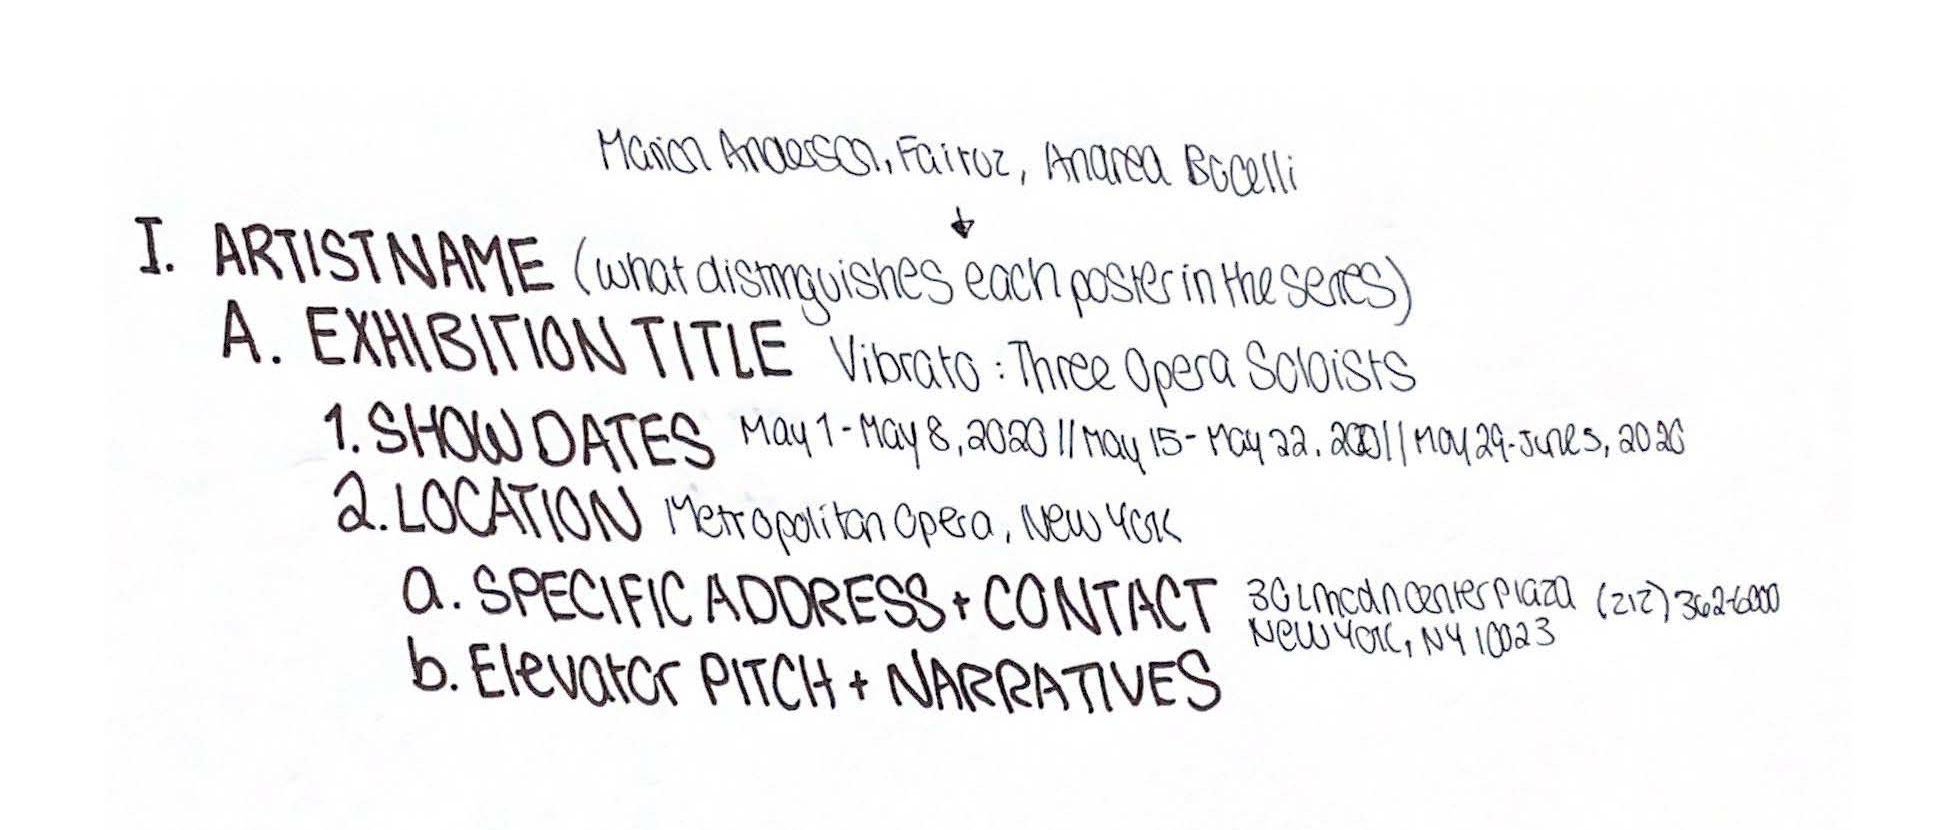 Marion Anderson, Fairuz, Andrea Bocelli
I. ARTIST NAME (what distinguishes each poster in the series)
A. EXHIBITION TITLE Vibrato : Three Opera Soloists
1. SHOW DATES May 1 - May 8, 2020 // May 15 - May 22, 2020 // May 29 - June 5, 2020
2. LOCATION Metropolitan Opera, New York
a. SPECIFIC ADDRESS + CONTACT 30 Lincoln Center Plaza (212) 362-6000
New York, NY 10023
b. Elevator PITCH + NARRATIVES